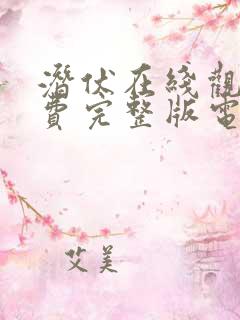 潛伏在綫觀
費完整版電
艾美